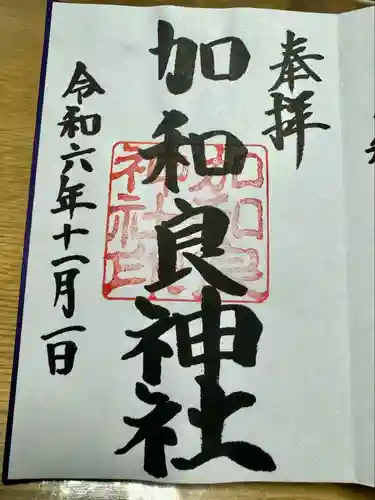 奉拝
加和良神社
加和良
神社印
令和六年十一月一日